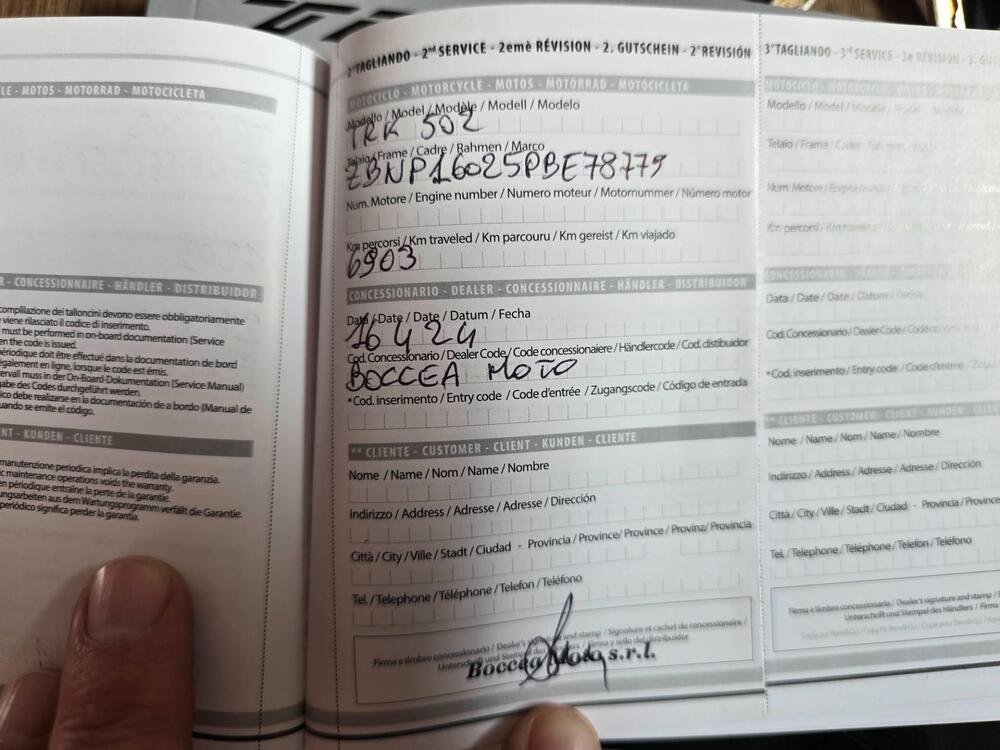 LE - MOTOS - MOTORRAD - MOTOCICLETA
R - CONCESSIONNAIRE - HÄNDLER - DISTRIBUIDOR
compilazione dei talloncini devono essere obbligatoriamente
viene rilasciato il codice di inserimento.
must be performed in on-board documentation (Service
en the code is issued.
périodique doit être effectué dans la documentation de bord
également en ligne, lorsque le code est émis.
ervall muss in der On-Board-Dokumentation (Service Manual)
abe des Codes durchgeführt werden.
ico debe realizarse en la documentación de a bordo (Manual de
uando se emite el código.
NT - KUNDEN - CLIENTE
manutenzione periodica implica la perdita della garanzia.
c maintenance operations voids the warranty.
en périodique entraîne la perte de la garantie.
ungsarbeiten aus dem Wartungsprogramm verfällt die Garantie.
periódico significa perder la garantía.
2°TAGLIANDO - 2nd SERVICE - 2emè RÉVISION - 2. GUTSCHEIN - 2°REVISIÓN
MOTOCICLO - MOTORCYCLE - MOTOS - MOTORRAD - MOTOCICLETA
Modello / Model / Modèle / Modell / Modelo
TRK 502
Telaio / Frame / Cadre / Rahmen / Marco
ZBNP16025PBE78779
Num. Motore / Engine number / Numero moteur / Motornummer / Número motor
Km percorsi / Km traveled / Km parcouru / Km gereist / Km viajado
6903
CONCESSIONARIO - DEALER - CONCESSIONNAIRE - HÄNDLER - DISTRIBUIDOR
Data / Date / Date / Datum / Fecha
16 4 24
Cod. Concessionario / Dealer Code / Code concessionaiere / Händlercode / Cod. distibuidor
BOCCEA MOTO
*Cod. inserimento / Entry code / Code d'entrée / Zugangscode / Código de entrada
** CLIENTE - CUSTOMER - CLIENT - KUNDEN - CLIENTE
Nome / Name / Nom / Name / Nombre
Indirizzo / Address / Adresse / Adresse / Dirección
Città / City / Ville / Stadt / Ciudad - Provincia / Province / Province / Provinz / Provincia
Tel. / Telephone / Téléphone / Telefon / Teléfono
Firma e timbro concessionario / Dealer's signature and stamp / Signature et cachet du concessionnaire /
Unterschrift und Stempel des Händlers / Firma y sello del distribuidor
Boccea Moto s.r.l.
3°TAGLIANDO - 3rd SERVICE - 3e RÉVISION - 3. GUTS
Modello / Model / Modèle / Modell
Telaio / Frame / Cadre / Rahmen
Num. Motore / Engine number
Km percorsi / Km traveled
CONCESSIONARIO - DEALER
Data / Date / Date / Datum / Fecha
Cod. Concessionario / Dealer Code / Code
*Cod. inserimento / Entry code / Code d'entrée
** CLIENTE - CUSTOMER - CLIENT - KUNDEN
Nome / Name / Nom / Name / Nombre
Indirizzo / Address / Adresse / Adresse / Dirección
Città / City / Ville / Stadt / Ciudad - Provincia / Province
Tel. / Telephone / Téléphone / Telefon / Teléfono
Firma e timbro concessionario / Dealer's signature and stamp /
Unterschrift und Stempel des Händlers / Firma